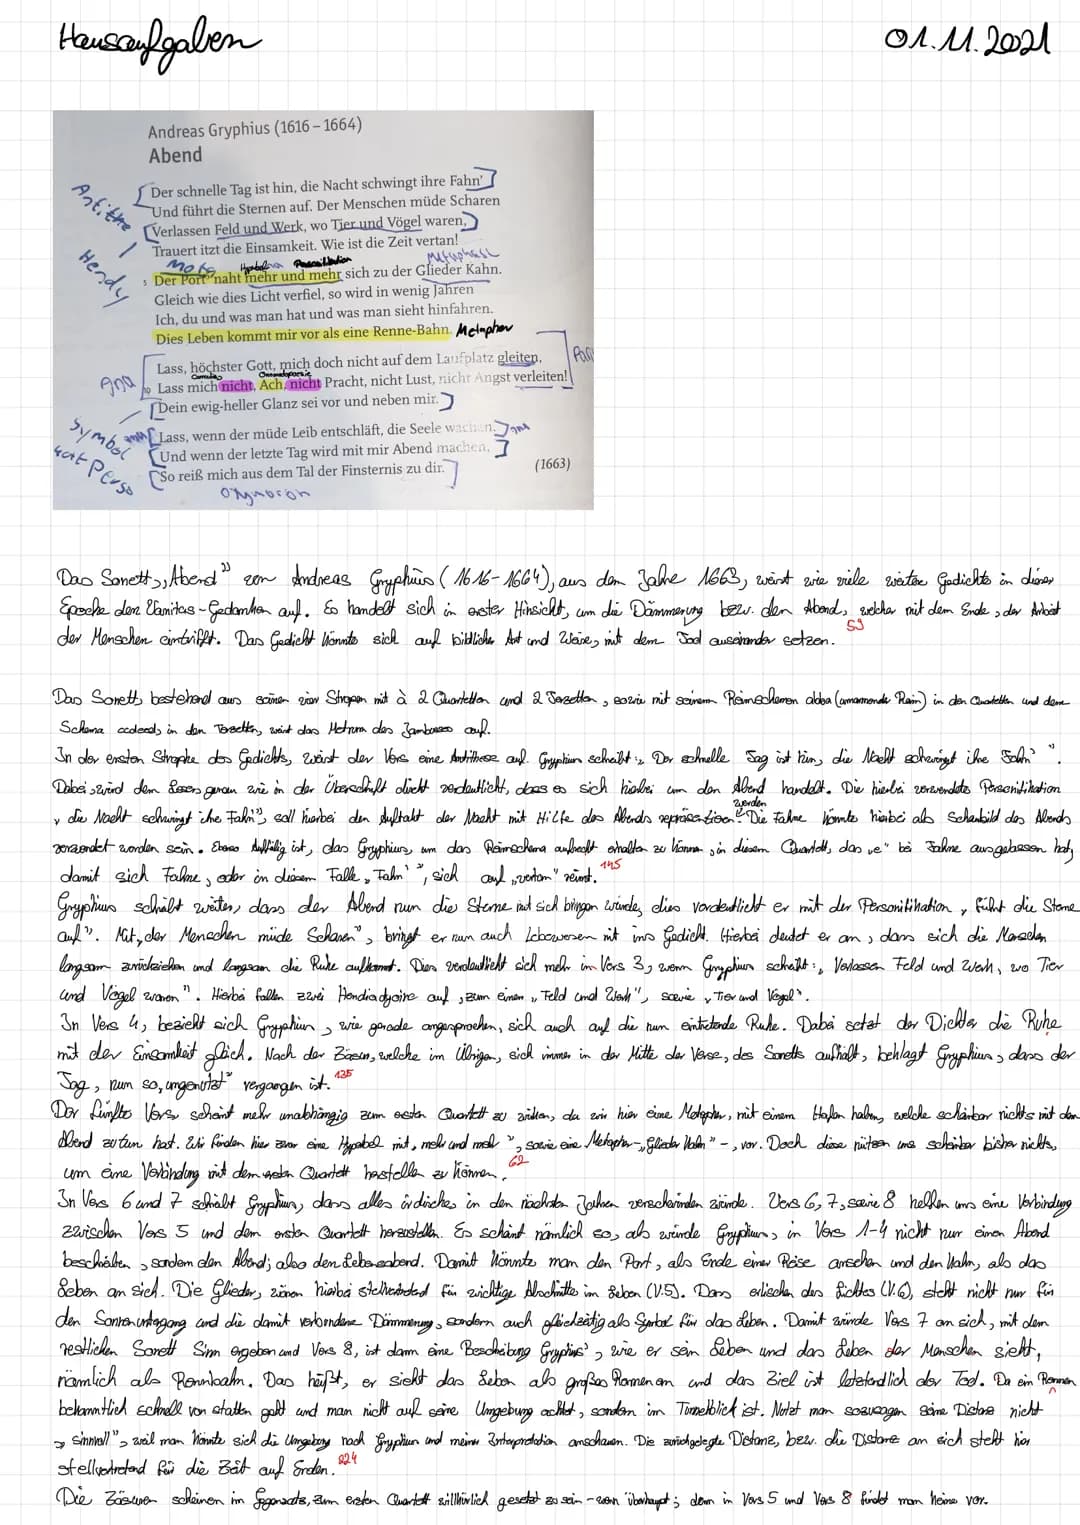 Hausaufgaben
01.11.2021
Andreas Gryphius (1616 – 1664)
Abend
Der schnelle Tag ist hin, die Nacht schwingt ihre Fahn'
Und führt die Sternen auf. Der Menschen müde Scharen
Verlassen Feld und Werk, wo Tier und Vögel waren,
Trauert itzt die Einsamkeit. Wie ist die Zeit vertan!
5 Der Port naht mehr und mehr sich zu der Glieder Kahn.
Gleich wie dies Licht verfiel, so wird in wenig Jahren
Ich, du und was man hat und was man sieht hinfahren.
Dies Leben kommt mir vor als eine Renne-Bahn. Metapher
Lass, höchster Gott, mich doch nicht auf dem Laufplatz gleiten,
10 Lass mich nicht, Ach, nicht Pracht, nicht Lust, nicht Angst verleiten!
Dein ewig-heller Glanz sei vor und neben mir.
Lass, wenn der müde Leib entschläft, die Seele wachen.
Und wenn der letzte Tag wird mit mir Abend machen,
So reiß mich aus dem Tal der Finsternis zu dir.
(1663)
Antithe
Hendy
Ana
Symbol
Das Sonett „Abend" von Andreas Gryphius (1616-1664), aus dem Jahre 1663, weist wie viele weitere Gedichte in dieser
Epoche den Vanitas-Gedanken auf. Es handelt sich in erster Hinsicht, um die Dämmerung bzw. den Abend, welcher mit dem Ende, der Arbeit
der Menschen eintrifft. Das Gedicht könnte sich auf bildlicher Art und Weise, mit dem Tod auseinander setzen.
59
Das Sonett, bestehend aus seinen vier Strophen mit à 2 Quartetten und 2 Terzetten, sowie mit seinem Reimschemen abba (umarmende Reim) in den Quartetten und dem
Schema ccdeed, in den Terzetten, weist das Metrum des Jambuses auf.
In der ersten Strophe des Gedichts, weist der Vers eine Antithese auf. Gryphius schreibt: „Der schnelle Tag ist hin, die Nacht schwingt ihre Fahn'".
Dabei wird dem Leser genau wie in der Überschrift direkt verdeutlicht, dass es sich hierbei um den Abend handelt. Die hierbei verwendete Personifikation
„die Nacht schwingt ihre Fahn", soll hierbei den Auftakt der Nacht mit Hilfe des Abends repräsentieren. Die Fahne könnte hierbei als Schaubild des Abends
werden
verwendet worden sein. Ebenso Auffällig ist, das Gryphius, um das Reimschema aufrecht erhalten zu können, in diesem Quartett, das „e" bei Fahne ausgelassen hat,
damit sich Fahne, oder in diesem Falle „Fahn'", sich auf „vertan" reimt.
145
Gryphius schreibt weiter, dass der Abend nun die Sterne mit sich bringen würde, dies verdeutlicht er mit der Personifikation „führt die Sterne
auf". Mit „der Menschen müde Scharen", bringt er nun auch Lebewesen mit ins Gedicht. Hierbei deutet er an, dass sich die Menschen
langsam zurückziehen und langsam die Ruhe aufkommt. Dies verdeutlicht sich mehr im Vers 3, wenn Gryphius schreibt: „Verlassen Feld und Werk, wo Tier
und Vögel waren". Hierbei fallen zwei Hendiadyoine auf, zum einen „Feld und Werk", sowie „Tier und Vögel".
In Vers 4, bezieht sich Gryphius, wie gerade angesprochen, sich auch auf die nun eintretende Ruhe. Dabei setzt der Dichter die Ruhe
mit der Einsamkeit gleich. Nach der Zäsur, welche im Übrigen, sich immer in der Mitte der Verse, des Sonetts aufhält, beklagt Gryphius, dass der
Tag, nun so „ungenutzt" vergangen ist.
135
Der fünfte Vers scheint mehr unabhängig zum ersten Quartett zu wirken, da wir hier eine Metapher, mit einem Hafen haben, welche scheinbar nichts mit dem
Abend zu tun hat. Wir finden hier zwar eine Hyperbel mit „mehr und mehr", sowie eine Metapher -„Glieder Kahn"-, vor. Doch diese nützen uns scheinbar bisher nichts,
um eine Verbindung mit dem ersten Quartett herstellen zu können.
62
In Vers 6 und 7 schreibt Gryphius, dass alles irdische, in den nächsten Jahren verschwinden würde. Vers 6, 7, sowie 8 helfen uns eine Verbindung
zwischen Vers 5 und dem ersten Quartett herzustellen. Es scheint nämlich so, als würde Gryphius, in Vers 1-4 nicht nur einen Abend
beschreiben, sondern den Abend; also den Lebensabend. Damit könnte man den Port, als Ende einer Reise ansehen und den Kahn, als das
Leben an sich. Die Glieder, wären hierbei stellvertretend für wichtige Abschnitte im Leben (V.5). Das erlischen des Lichtes (V.6), steht nicht nur für
den Sonnenuntergang und die damit verbundene Dämmerung, sondern auch gleichzeitig als Symbol für das Leben. Damit würde Vers 7 an sich, mit dem
restlichen Sonett Sinn ergeben und Vers 8, ist dann eine Beschreibung Gryphius', wie er sein Leben und das Leben der Menschen sieht,
nämlich als Rennbahn. Das heißt, er sieht das Leben als großes Rennen an und das Ziel ist letztendlich der Tod. Da ein Rennen
bekanntlich schnell von statten geht und man nicht auf seine Umgebung achtet, sondern im Tunnelblick ist. Nutzt man sozusagen seine Distanz nicht
„sinnvoll", weil man könnte sich die Umgebung nach Gryphius und meiner Interpretation anschauen. Die zurückgelegte Distanz, bzw. die Distanz an sich steht hier
stellvertretend für die Zeit auf Erden.
224
Die Zäsuren scheinen im Gegensatz, zum ersten Quartett willkürlich gesetzt zu sein - wenn überhaupt; denn in Vers 5 und Vers 8 findet man keine vor.